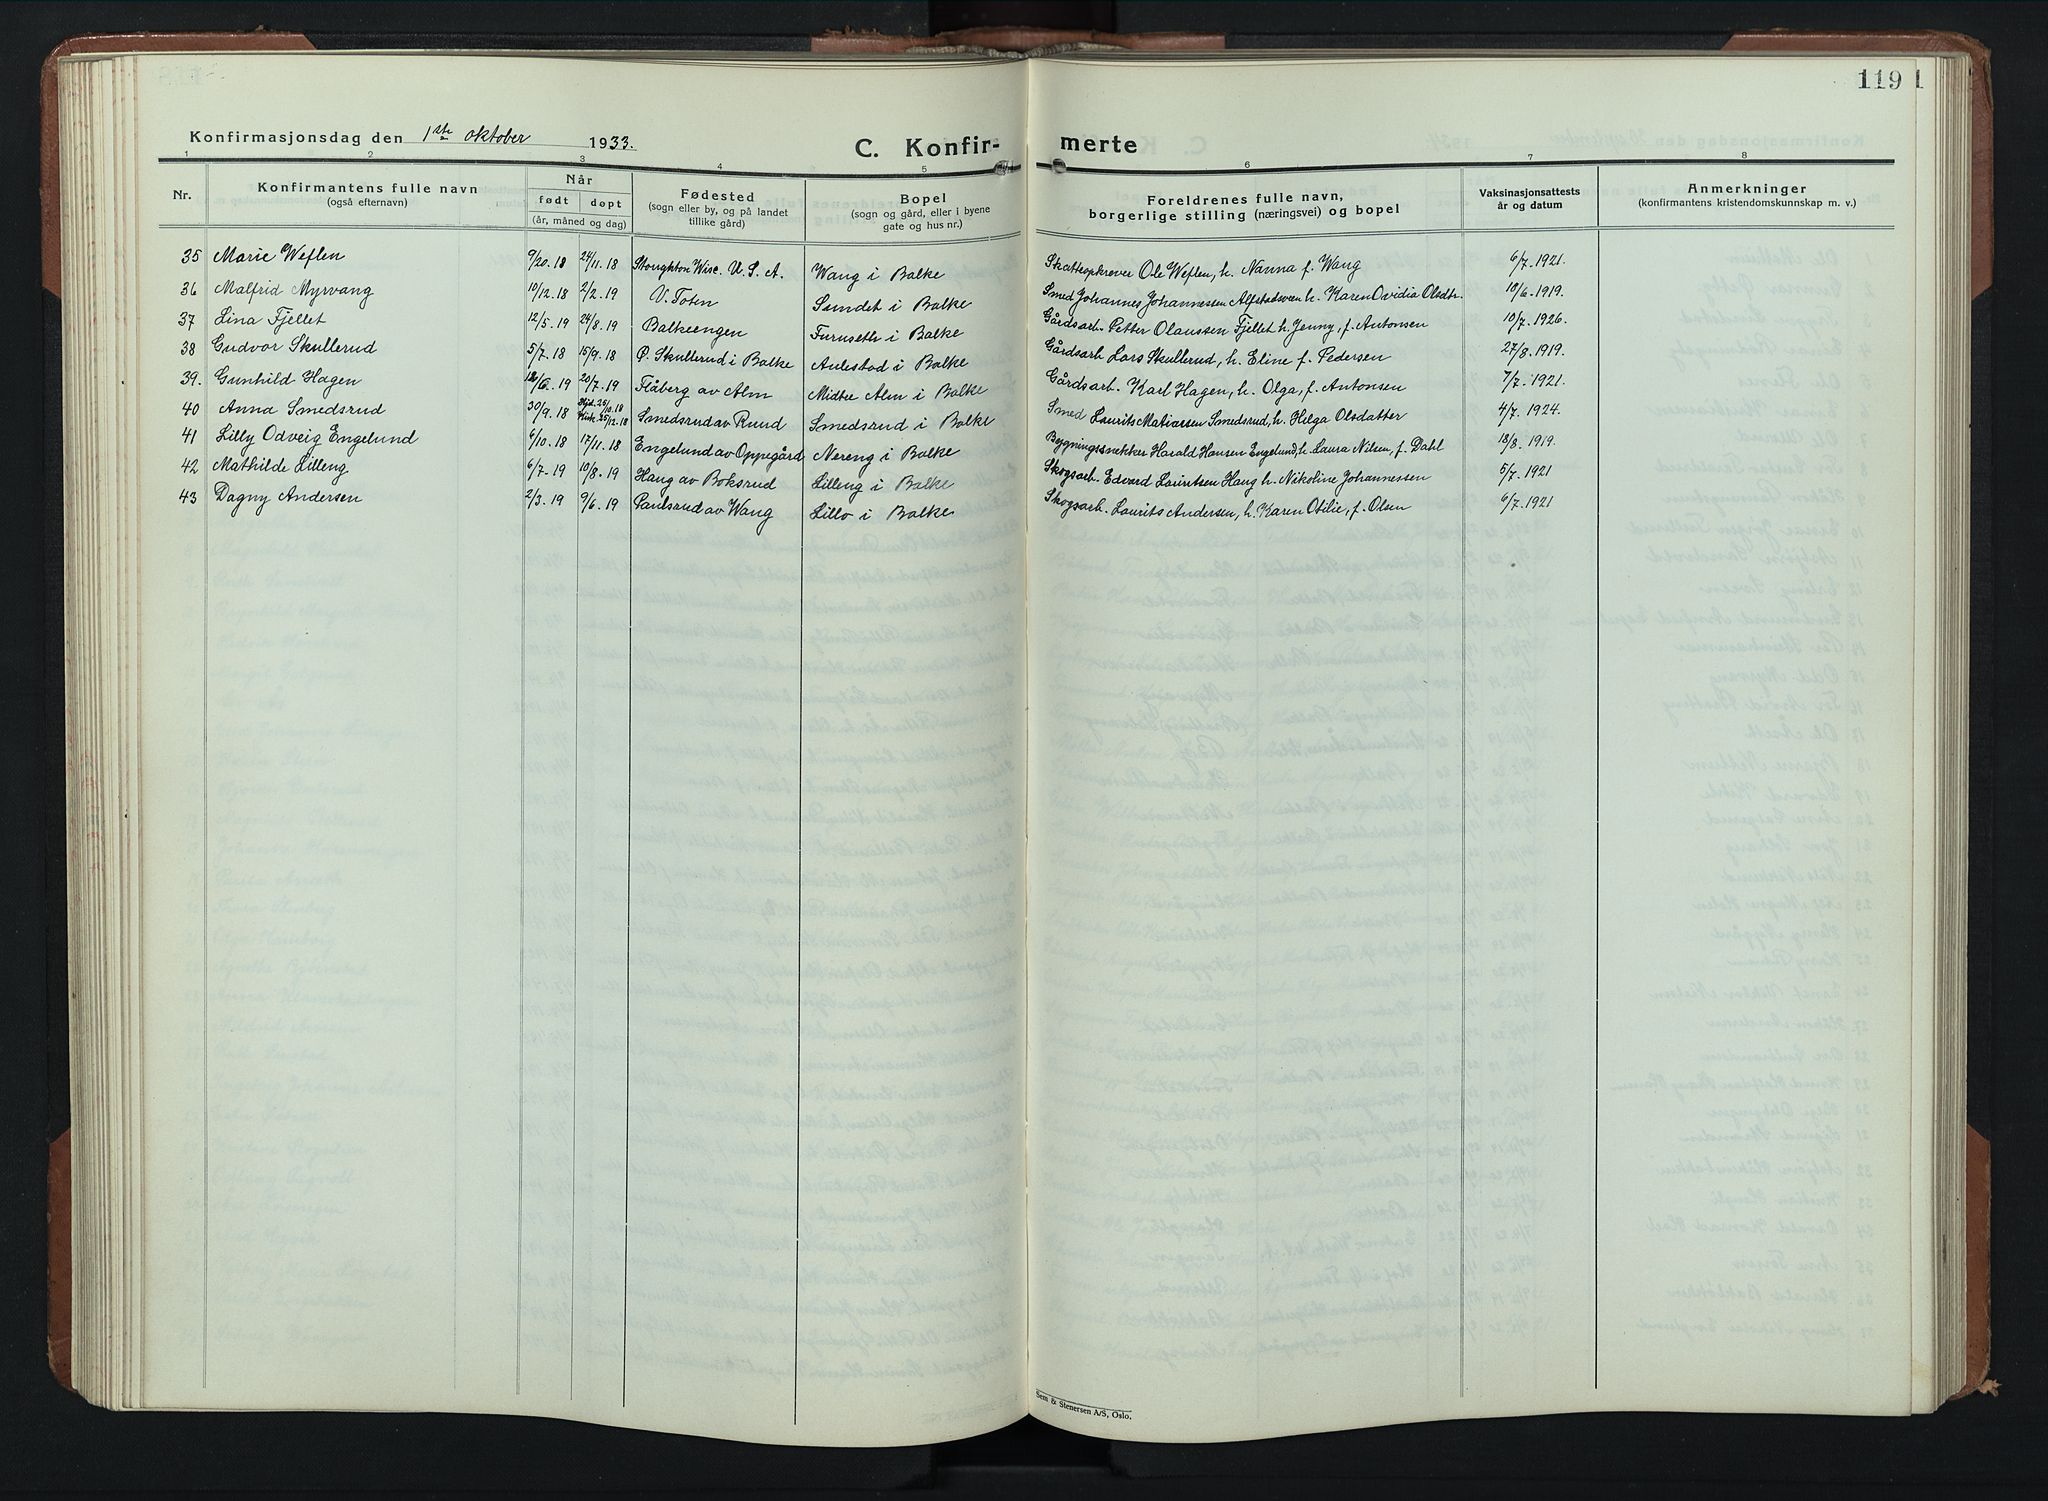 119 1
Konfirmasjonsdag den 1ste oktober 1933.
C. Konfir- merte
1 2 3 4 5 6 7 8
Nr. Konfirmantens fulle navn (også efternavn) Når født døpt (år, måned og dag) Fødested (sogn eller by, og på landet tillike gård) Bopel (sogn og gård, eller i byene gate og hus nr.) Foreldrenes fulle navn, borgerlige stilling (næringsvei) og bopel Vaksinasjonsattests år og datum Anmerkninger (konfirmantens kristendomskunnskap m. v.)
35 Marie Weflen 9/20.18 24/11.18 Stoughton Wisc. U. S. A. Wang i Balke Skatteopkrever Ole Weflen, h. Nanna f. Wang 6/7.1921.
36 Malfrid Myrvang 10/12.18 2/2.19 V. Toten Sundet i Balke Smed Johannes Johannessen Alfstadsveen h. Karen Ovidia Olsdtr. 10/6.1919.
37 Lina Fjellet 12/5.19 24/8.19 Balkeengen Furuseth i Balke Gårdsarb. Petter Olaussen Fjellet h. Jenny, f. Antonsen 10/7.1926.
38 Gudvor Skullerud 5/7.18 15/9.18 P. Skullerud i Balke Aulestad i Balke Gårdsarb Lars Skullerud, h. Eline f. Pedersen 27/8.1919.
39. Gunhild Hagen 12/6.19 20/7.19 Flåberg av Alm Midtre Alm i Balke Gårdsarb. Karl Hagen, h. Olga, f. Antonsen 7/7.1921.
40 Anna Smedsrud 30/9.18 Hjd. 25/10.18 Kirk. 25/12.18 Smedsrud av Ruud Smedsrud i Balke Smed Laurits Matiassen Smedsrud, h. Helga Olsdatter 4/7.1924.
41 Lilly Odveig Engelund 6/10.18 17/11.18 Engelund av Oppegård Nereng i Balke Bygningssnekker Harald Hansen Engelund, h. Laura Nilsen, f. Dahl 18/8.1919.
42 Mathilde Lilleng 6/7.19 10/8.19 Haug av Boksrud Lilleng i Balke Skogsarb. Edvard Lauritsen Haug h. Nikoline Johannessen 5/7.1921
43 Dagny Andersen 2/3.19 9/6.19 Paulsrud av Wang Lillo i Balke Skogsarb. Laurits Andersen, h. Karen Otilie, f. Olsen 6/7.1921
Sem & Stenersen A/S, Oslo.